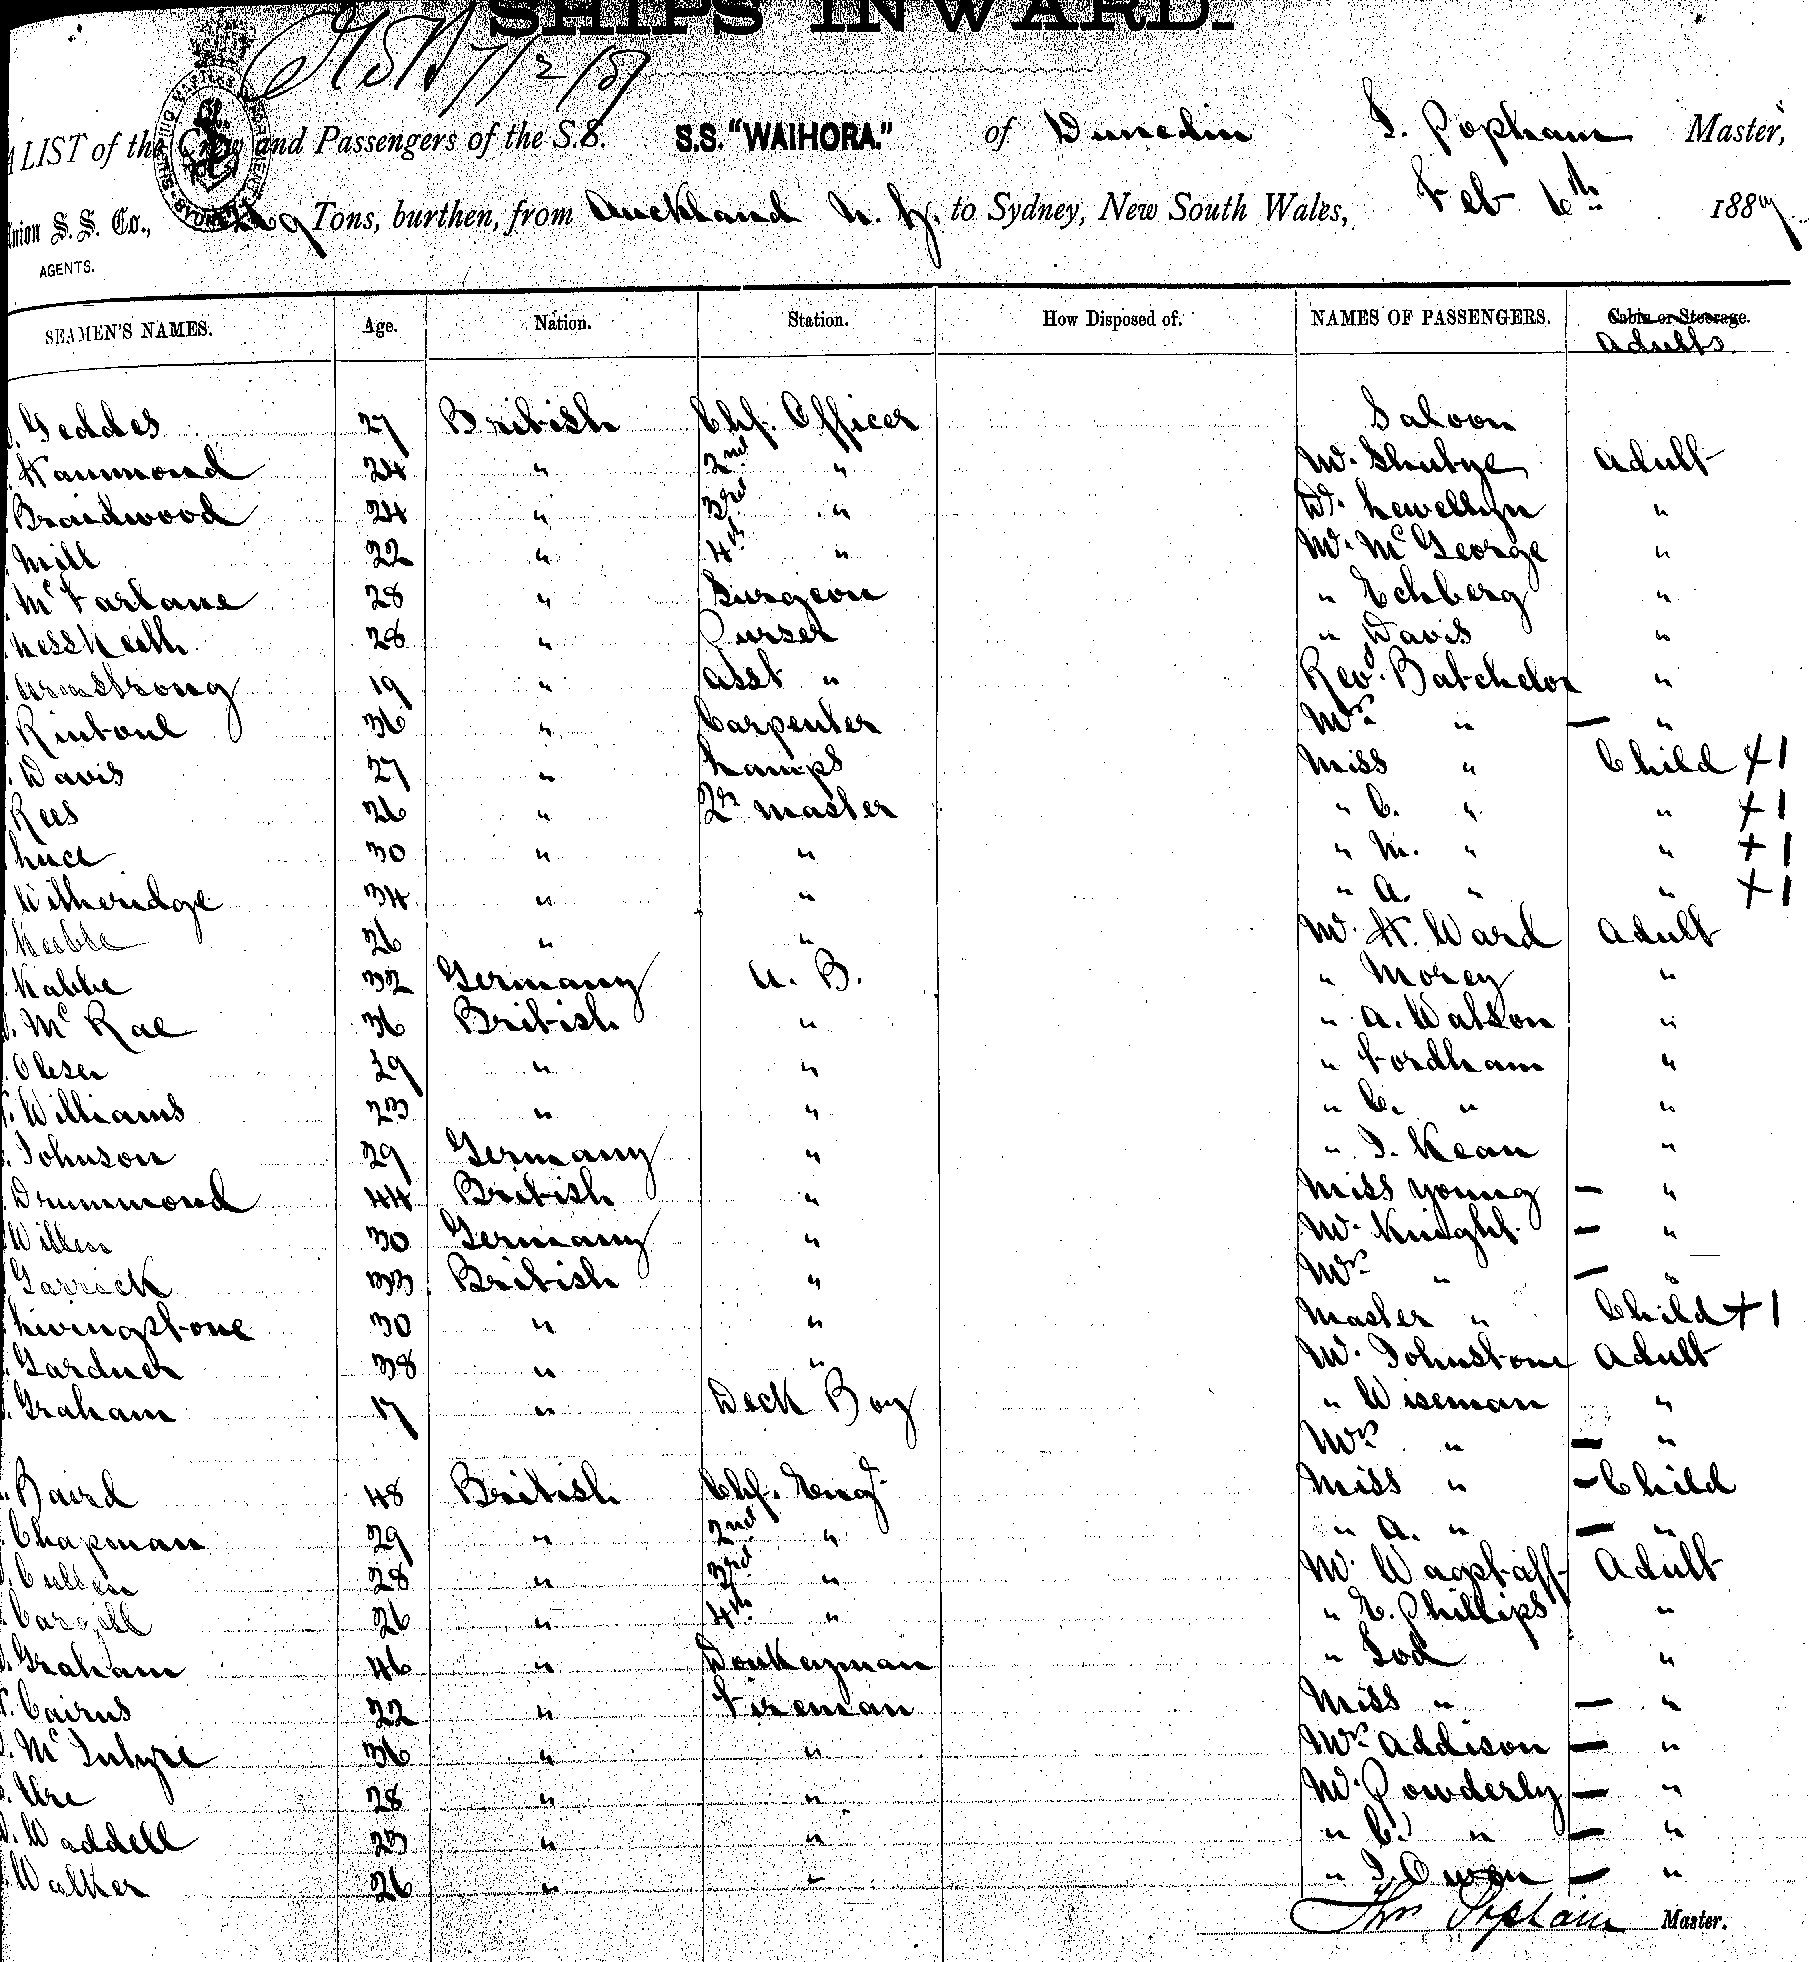 SHIPS INWARD.
A LIST of the Crew and Passengers of the S.S. S.S. "WAIHORA." of Dunedin T. Popham Master,
Union S. S. Co., Tons, burthen, from Auckland N. Z. to Sydney, New South Wales, Feb 6th 1889
AGENTS.
SEAMEN'S NAMES. Age. Nation. Station. How Disposed of. NAMES OF PASSENGERS. Cabin or Steerage.
Adults
Geddes 27 British Chf. Officer Saloon
Hammond 24 " 2nd " Mr. Adult
Braidwood 24 " 3rd " Dr. Lewellyn "
Mill 22 " 4th " Mr. McGeorge "
McFarlane 28 " Surgeon " Echberg "
28 " Purser " Davis "
Armstrong 19 " Asst " Revd. Batchelor "
Rintoul 36 " Carpenter Mrs " — "
Davis 27 " Lamps Miss " Child +1
Rees 26 " Qr Master " C. " " +1
30 " " " M. " " +1
Witheridge 34 " " " A. " " +1
Keeble 26 " " Mr. H. Ward Adult
Kabbe 32 Germany A. B. " Morey "
McRae 36 British " " A. Watson "
Olesen 29 " " " Fordham "
Williams 23 " " " C. " "
Johnson 29 Germany " " J. Kean "
Drummond 44 British " Miss Young — "
Willen 30 Germany " Mr. Knight — "
Garrick 33 British " Mrs " — "
Livingstone 30 " " Master " Child +1
Gardner 38 " " Mr. Johnstone Adult
Graham 17 " Deck Boy " Wiseman "
Mrs " — "
Baird 48 British Chf. Engr. Miss " — Child
Chapman 29 " 2nd " " A. " — "
Cullen 28 " 3rd " Mr. Wagstaff Adult
Cargill 26 " 4th " " E. Phillips "
Graham 46 " Donkeyman " "
Cairns 22 " Fireman Miss " — "
McIntyre 36 " " Mrs Addison — "
Ure 28 " " Mr. Powderly — "
Waddell 23 " " " C. " — "
Walker 26 " " " J. Owen — "
Thos Popham Master.